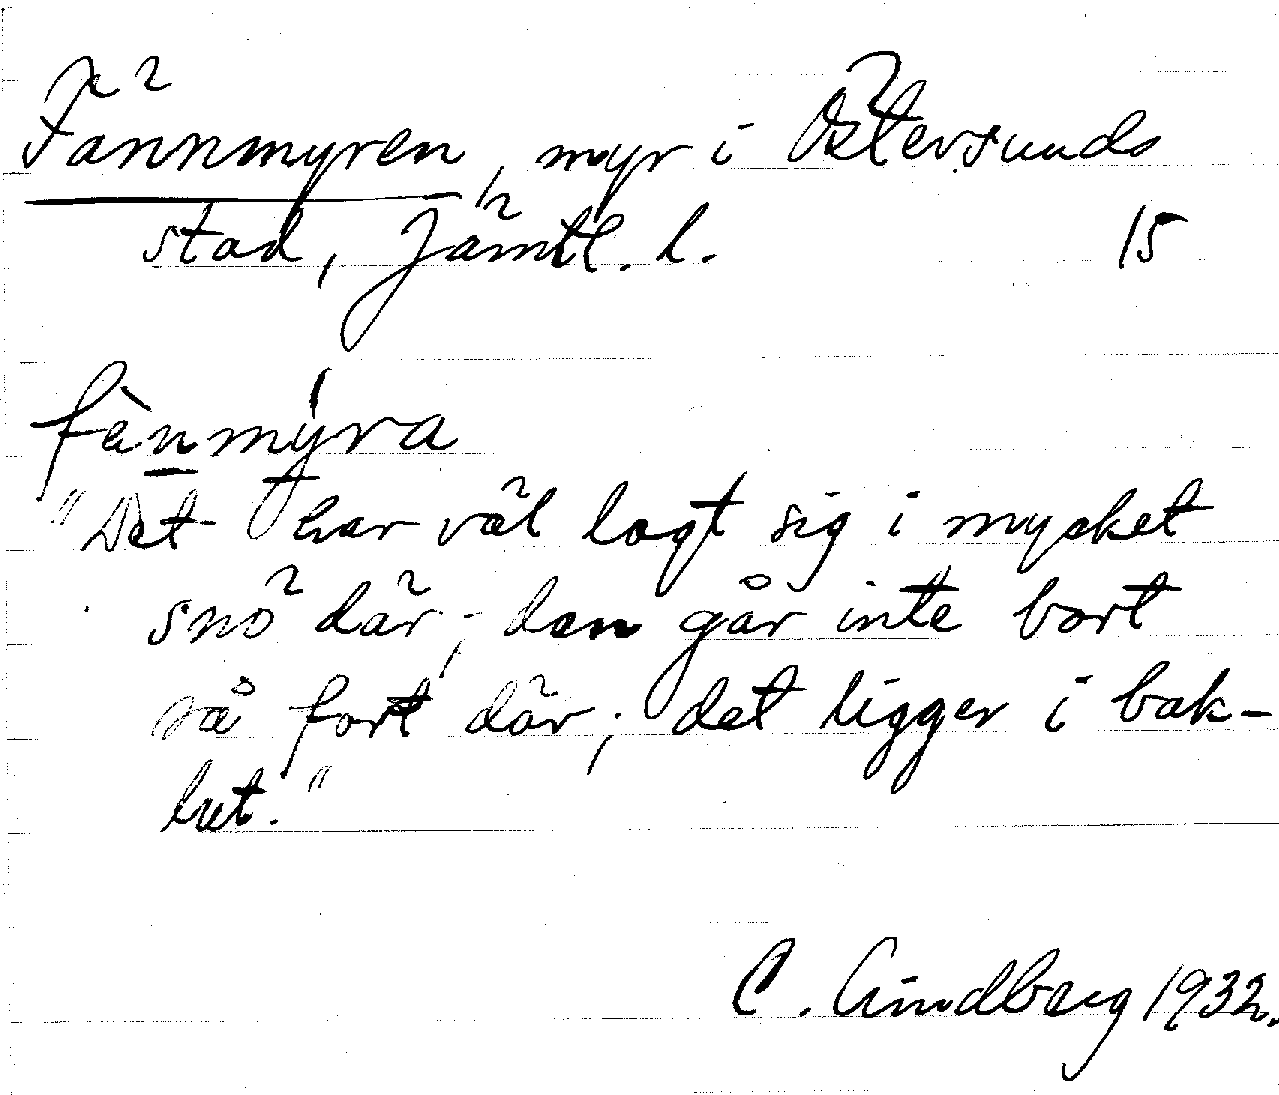 Fännmyren, myr i Östersunds
stad, Jämtl. l. 15
fä̀nmýra
"Det har väl lagt sig i mycket
snö där; den går inte bort
så fort där; det ligger i bak-
lut."
C. Lindberg 1932.